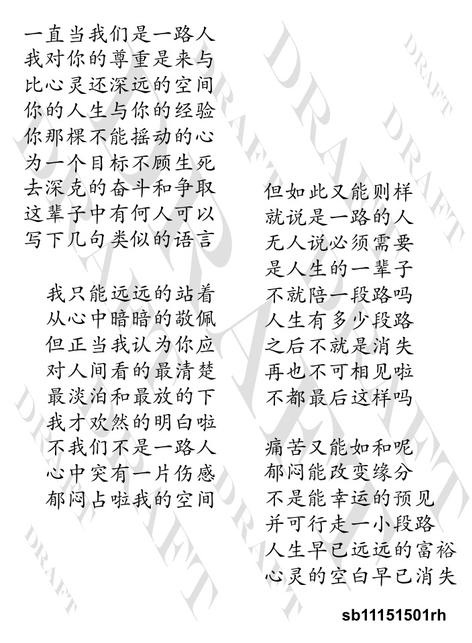 一直当我们是一路人
我对你的尊重是来与
比心灵还深远的空间
你的人生与你的经验
你那棵不能摇动的心
为一个目标不顾生死
去深克的奋斗和争取
这辈子中有何人可以
写下几句类似的语言
我只能远远的站着
从心中暗暗的敬佩
但正当我认为你应
对人间看的最清楚
最淡泊和最放的下
我才欢然的明白啦
不我们不是一路人
心中突有一片伤感
郁闷占啦我的空间
但如此又能则样
就说是一路的人
无人说必须需要
是人生的一辈子
不就陪一段路吗
人生有多少段路
之后不就是消失
再也不可相见啦
不都最后这样吗
痛苦又能如和呢
郁闷能改变缘分
不是能幸运的预见
并可行走一小段路
人生早已远远的富裕
心灵的空白早已消失
sb11151501rh
DRAFT
DRAFT
DRAFT
DRAFT
DRAFT
DRAFT
DRAFT
DRAFT
DRAFT